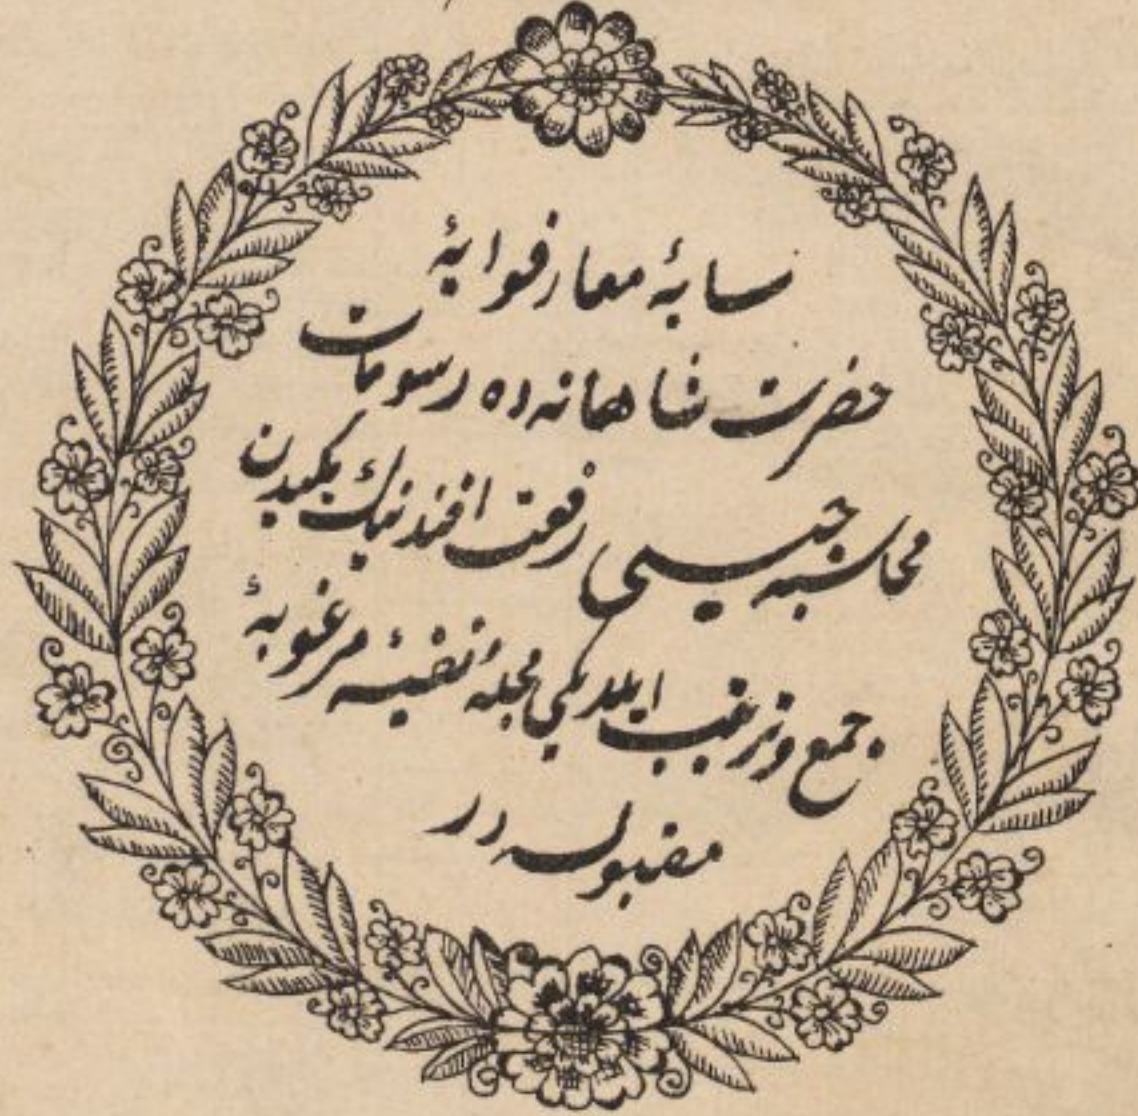 سایهٔ معارفوایهٔ
حضرت شاهانه ده رسومات
محاسبه جیسی رفعت افندینك یكیدن
جمع و ترتیب ایلدیكی مجلهٔ نفیسهٔ مرغوبهٔ
مقبوله در